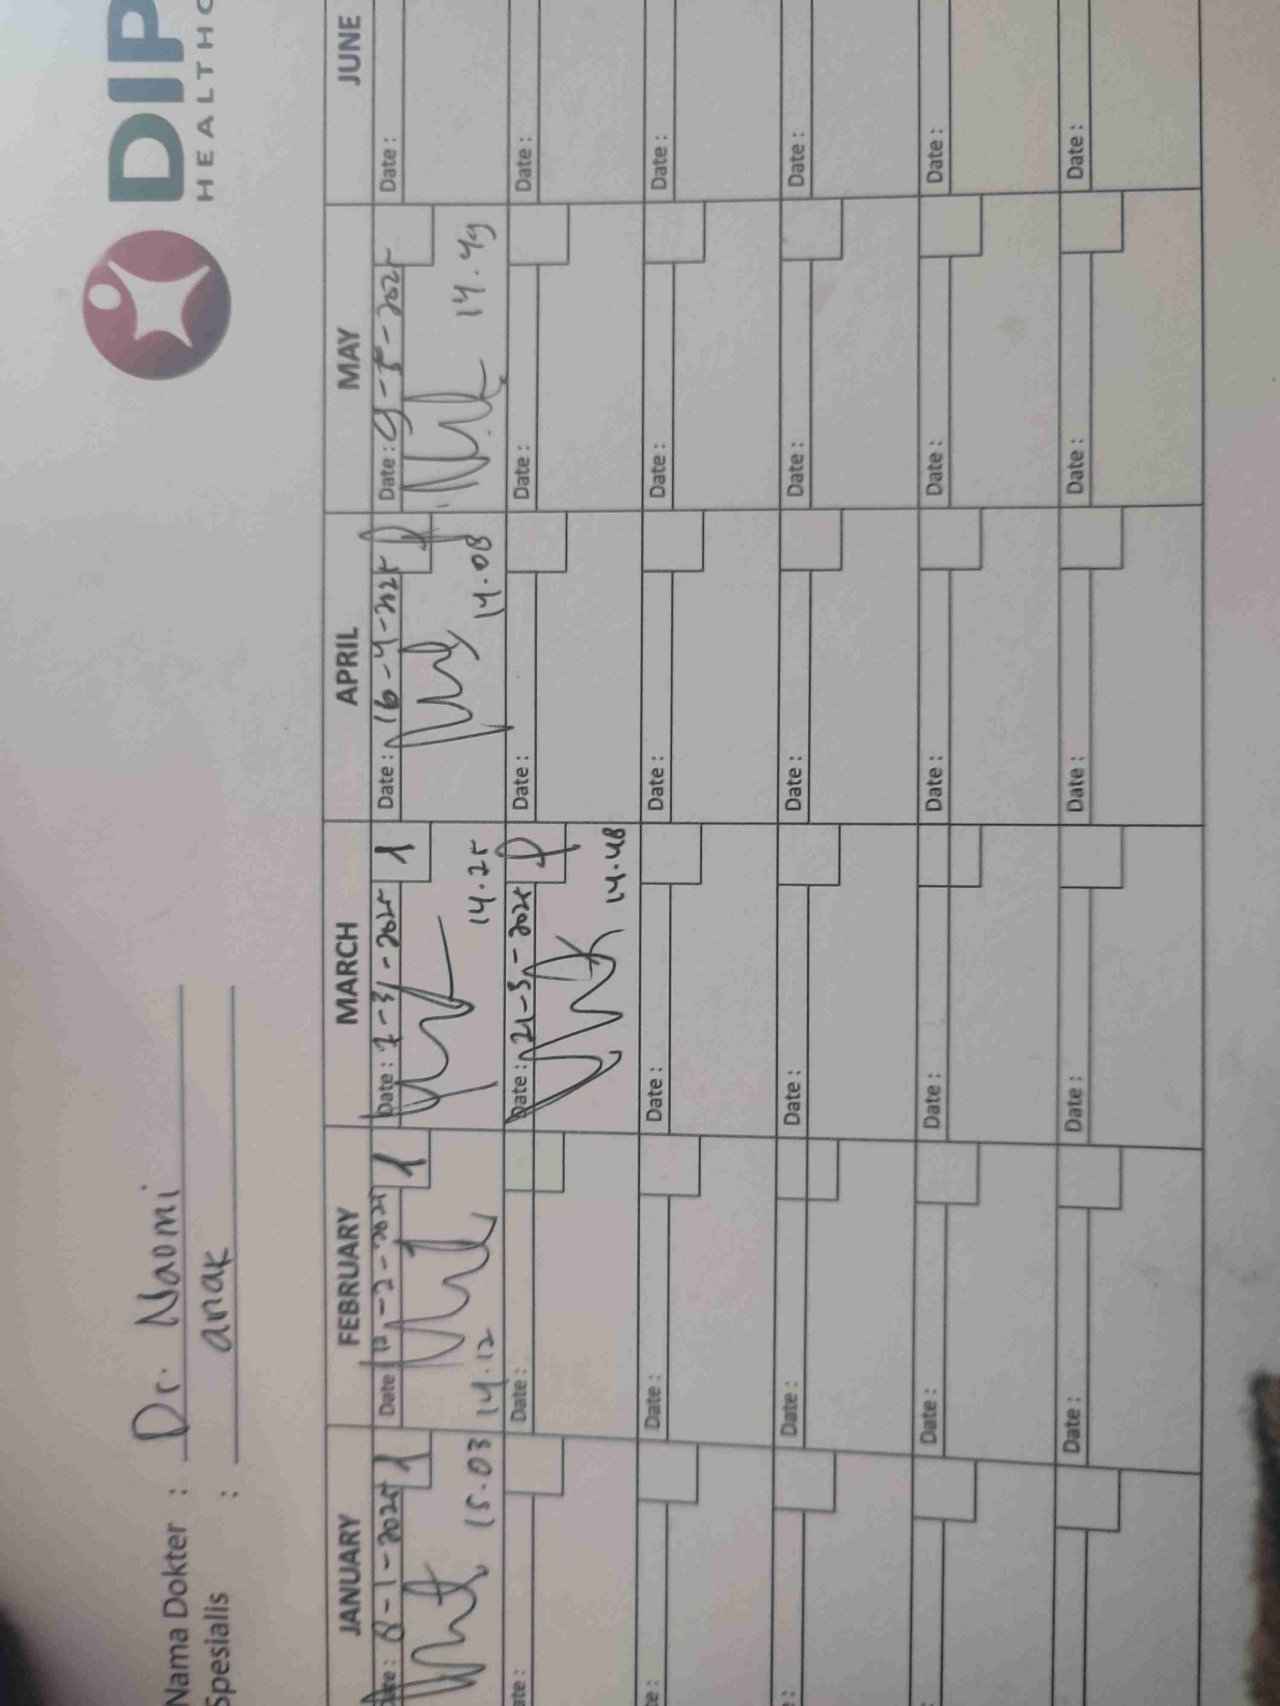 DIP
HEALTHC
Nama Dokter : Dr. Naomi
Spesialis : anak
JANUARY FEBRUARY MARCH APRIL MAY JUNE
8-1-2025 1 Date 12-2-2025 1 Date: 7-3-2025 1 Date: 16-4-2025 P Date: 9-5-2025 Date:
15.03 14.12 14.25 14.08 14.49
Date: Date: 21-3-2025 P Date: Date: Date:
14.48
Date: Date: Date: Date: Date:
Date: Date: Date: Date: Date:
Date: Date: Date: Date: Date:
Date: Date: Date: Date: Date: